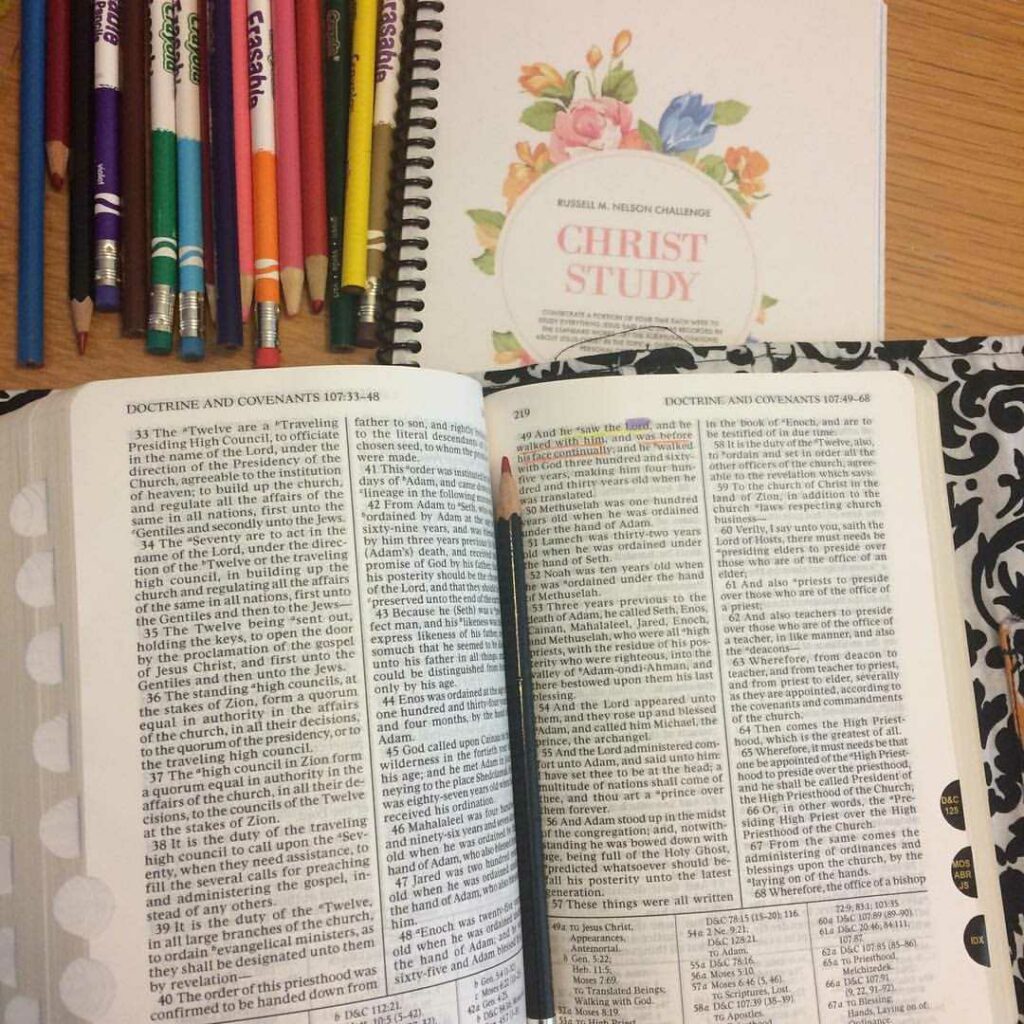 Erasable
Crayola
Erasable
Erasable
violet
RUSSELL M. NELSON CHALLENGE
CHRIST
STUDY
CONSECRATE A PORTION OF YOUR TIME EACH WEEK TO
STUDY EVERYTHING JESUS SAID
DOCTRINE AND COVENANTS 107:33–48
33 The ᵃTwelve are a ᵇTraveling
Presiding High Council, to officiate
in the name of the Lord, under the
direction of the Presidency of the
Church, agreeable to the institution
of heaven; to build up the church,
and regulate all the affairs of the
same in all nations, first unto the
ᶜGentiles and secondly unto the Jews.
34 The ᵃSeventy are to act in the
name of the Lord, under the direc-
tion of the ᵇTwelve or the traveling
high council, in building up the
church and regulating all the affairs
of the same in all nations, first unto
the Gentiles and then to the Jews—
35 The Twelve being ᵃsent out,
holding the keys, to open the door
by the proclamation of the gospel
of Jesus Christ, and first unto the
Gentiles and then unto the Jews.
36 The standing ᵃhigh councils, at
the stakes of Zion, form a quorum
equal in authority in the affairs
of the church, in all their decisions,
to the quorum of the presidency, or to
the traveling high council.
37 The ᵃhigh council in Zion form
a quorum equal in authority in the
affairs of the church, in all their de-
cisions, to the councils of the Twelve
at the stakes of Zion.
38 It is the duty of the traveling
high council to call upon the ᵃSev-
enty, when they need assistance, to
fill the several calls for preaching
and administering the gospel, in-
stead of any others.
39 It is the duty of the ᵃTwelve,
in all large branches of the church,
to ordain ᵇevangelical ministers, as
they shall be designated unto them
by revelation—
40 The order of this priesthood was
confirmed to be handed down from
father to son, and rightly
to the literal descendants
chosen seed, to whom the
were made.
41 This ᵃorder was instituted
days of ᵇAdam, and came
ᶜlineage in the following
42 From Adam to ᵃSeth,
ᵇordained by Adam at the
sixty-nine years, and was
by him three years previous
(Adam's) death, and received
promise of God by his father
his posterity should be the
of the Lord, and that they should
ᵉpreserved unto the end of the
43 Because he (Seth) was a
fect man, and his ᵇlikeness
express likeness of his father
somuch that he seemed to be
unto his father in all things
could be distinguished from
only by his age.
44 Enos was ordained at the age
one hundred and thirty-four
and four months, by the hand
Adam.
45 God called upon Cainan
wilderness in the fortieth
his age; and he met Adam in
neying to the place Shedolamak
was eighty-seven years old when
received his ordination.
46 Mahalaleel was four hundred
and ninety-six years and seven
old when he was ordained
hand of Adam, who also blessed
47 Jared was two hundred
old when he was ordained
the hand of Adam, who also
him.
48 ᵃEnoch was twenty-five
old when he was ordained
the hand of Adam; and
sixty-five and Adam blessed
b D&C 112:21.
219
DOCTRINE AND COVENANTS 107:49–68
49 And he ᵃsaw the Lord, and he
walked with him, and was before
his face continually; and he ᵇwalked
with God three hundred and sixty-
five years, making him four hun-
dred and thirty years old when he
was translated.
50 Methuselah was one hundred
years old when he was ordained
under the hand of Adam.
51 Lamech was thirty-two years
old when he was ordained under
the hand of Seth.
52 Noah was ten years old when
he was ᵃordained under the hand
of Methuselah.
53 Three years previous to the
death of Adam, he called Seth, Enos,
Cainan, Mahalaleel, Jared, Enoch,
and Methuselah, who were all ᵃhigh
priests, with the residue of his pos-
terity who were righteous, into the
valley of ᵇAdam-ondi-Ahman, and
there bestowed upon them his last
blessing.
54 And the Lord appeared unto
them, and they rose up and blessed
ᵃAdam, and called him Michael, the
prince, the archangel.
55 And the Lord administered com-
fort unto Adam, and said unto him:
I have set thee to be at the head; a
multitude of nations shall come of
thee, and thou art a ᵃprince over
them forever.
56 And Adam stood up in the midst
of the congregation; and, notwith-
standing he was bowed down with
age, being full of the Holy Ghost,
ᵃpredicted whatsoever should be-
fall his posterity unto the latest
generation.
57 These things were all written
in the book of ᵃEnoch, and are to
be testified of in due time.
58 It is the duty of the ᵃTwelve, also,
to ᵇordain and set in order all the
other officers of the church, agree-
able to the revelation which says:
59 To the church of Christ in the
land of Zion, in addition to the
church ᵃlaws respecting church
business—
60 Verily, I say unto you, saith the
Lord of Hosts, there must needs be
ᵃpresiding elders to preside over
those who are of the office of an
elder;
61 And also ᵃpriests to preside
over those who are of the office of
a priest;
62 And also teachers to preside
over those who are of the office of
a teacher, in like manner, and also
the ᵃdeacons—
63 Wherefore, from deacon to
teacher, and from teacher to priest,
and from priest to elder, severally
as they are appointed, according to
the covenants and commandments
of the church.
64 Then comes the High Priest-
hood, which is the greatest of all.
65 Wherefore, it must needs be that
one be appointed of the ᵃHigh Priest-
hood to preside over the priesthood,
and he shall be called President of
the High Priesthood of the Church;
66 Or, in other words, the ᵃPre-
siding High Priest over the High
Priesthood of the Church.
67 From the same comes the
administering of ordinances and
blessings upon the church, by the
ᵃlaying on of the hands.
68 Wherefore, the office of a bishop
49a TG Jesus Christ,
Appearances,
Antemortal.
b Gen. 5:22;
Heb. 11:5;
Moses 7:69.
TG Translated Beings;
Walking with God.
52a Moses 8:19.
D&C 78:15 (15–20); 116.
54a 2 Ne. 9:21;
D&C 128:21.
TG Adam.
55a D&C 78:16.
56a Moses 5:10.
57a Moses 6:46 (5, 46).
TG Scriptures, Lost.
58a D&C 107:39 (38–39).
TG Apostles.
72:9; 83:1; 103:35.
60a D&C 107:89 (89–90).
61a D&C 20:46; 84:111;
107:87.
62a D&C 107:85 (85–86).
65a TG Priesthood,
Melchizedek.
66a D&C 107:91
(9, 22, 91–92).
67a TG Blessing;
Hands, Laying on of;
D&C
125
MOS
ABR
JS
IDX